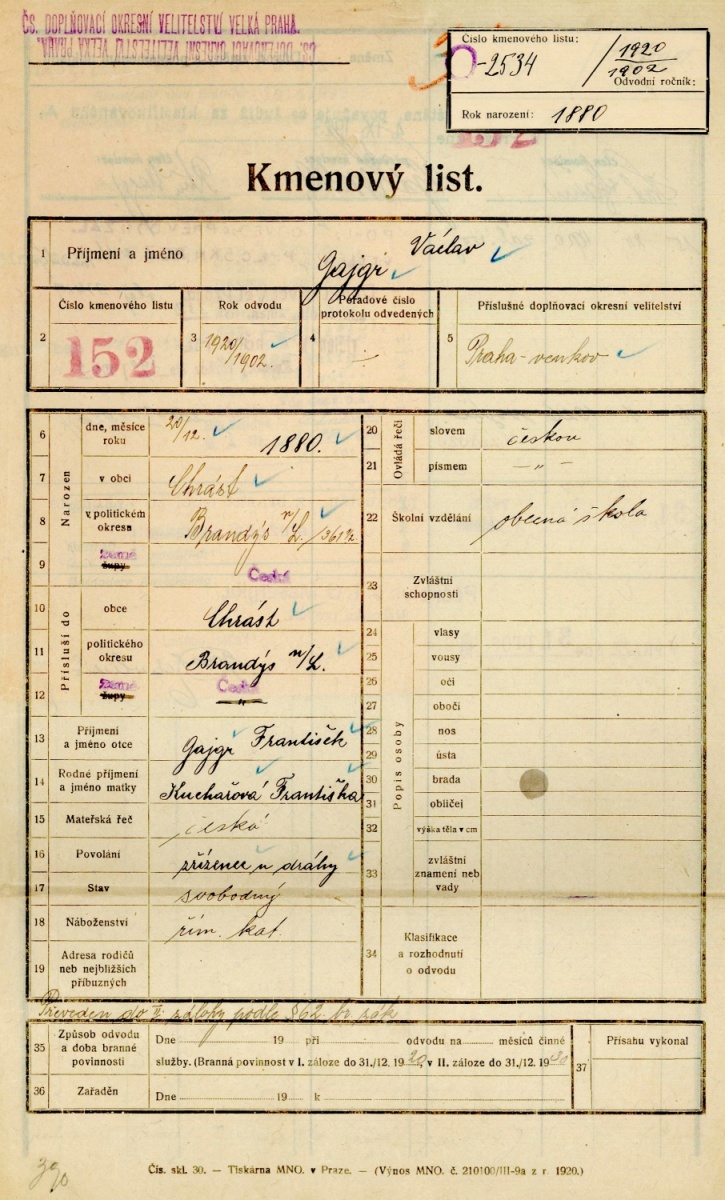 ČS. DOPLŇOVACÍ OKRESNÍ VELITELSTVÍ VELKÁ PRAHA.
ČS. DOPLŇOVACÍ OKRESNÍ VELITELSTVÍ VELKÁ PRAHA.
Číslo kmenového listu:
-2534 / 1920
1902
Odvodní ročník:
Rok narození: 1880
Kmenový list.
1 Příjmení a jméno Gajgr Václav
2 Číslo kmenového listu 152
3 Rok odvodu 1920/1902.
4 Pořadové číslo protokolu odvedených
5 Příslušné doplňovací okresní velitelství Praha-venkov
Narozen
6 dne, měsíce roku 20/12. 1880.
7 v obci Chrást
8 v politickém okresu Brandýs n/L.
9 země župy Česká
Přísluší do
10 obce Chrást
11 politického okresu Brandýs n/L.
12 země župy Česká
"
13 Příjmení a jméno otce Gajgr František
14 Rodné příjmení a jméno matky Kuchařová Františka
15 Mateřská řeč česká
16 Povolání zřízenec u dráhy
17 Stav svobodný
18 Náboženství řím. kat.
19 Adresa rodičů neb nejbližších příbuzných
Ovládá řeči
20 slovem českou
21 písmem — " —
22 Školní vzdělání obecná škola
23 Zvláštní schopnosti
Popis osoby
24 vlasy
25 vousy
26 oči
27 obočí
28 nos
29 ústa
30 brada
31 obličej
32 výška těla v cm
33 zvláštní znamení neb vady
34 Klasifikace a rozhodnutí o odvodu
Převeden do II. zálohy podle § 62 br. zák
35 Způsob odvodu a doba branné povinnosti
Dne 19 při odvodu na měsíců činné
služby. (Branná povinnost v I. záloze do 31./12. 1920, v II. záloze do 31./12. 1930
36 Zařaděn Dne 19 k
37 Přísahu vykonal
390
Čís. skl. 30. — Tiskárna MNO. v Praze. — (Výnos MNO. č. 210100/III-9a z r. 1920.)